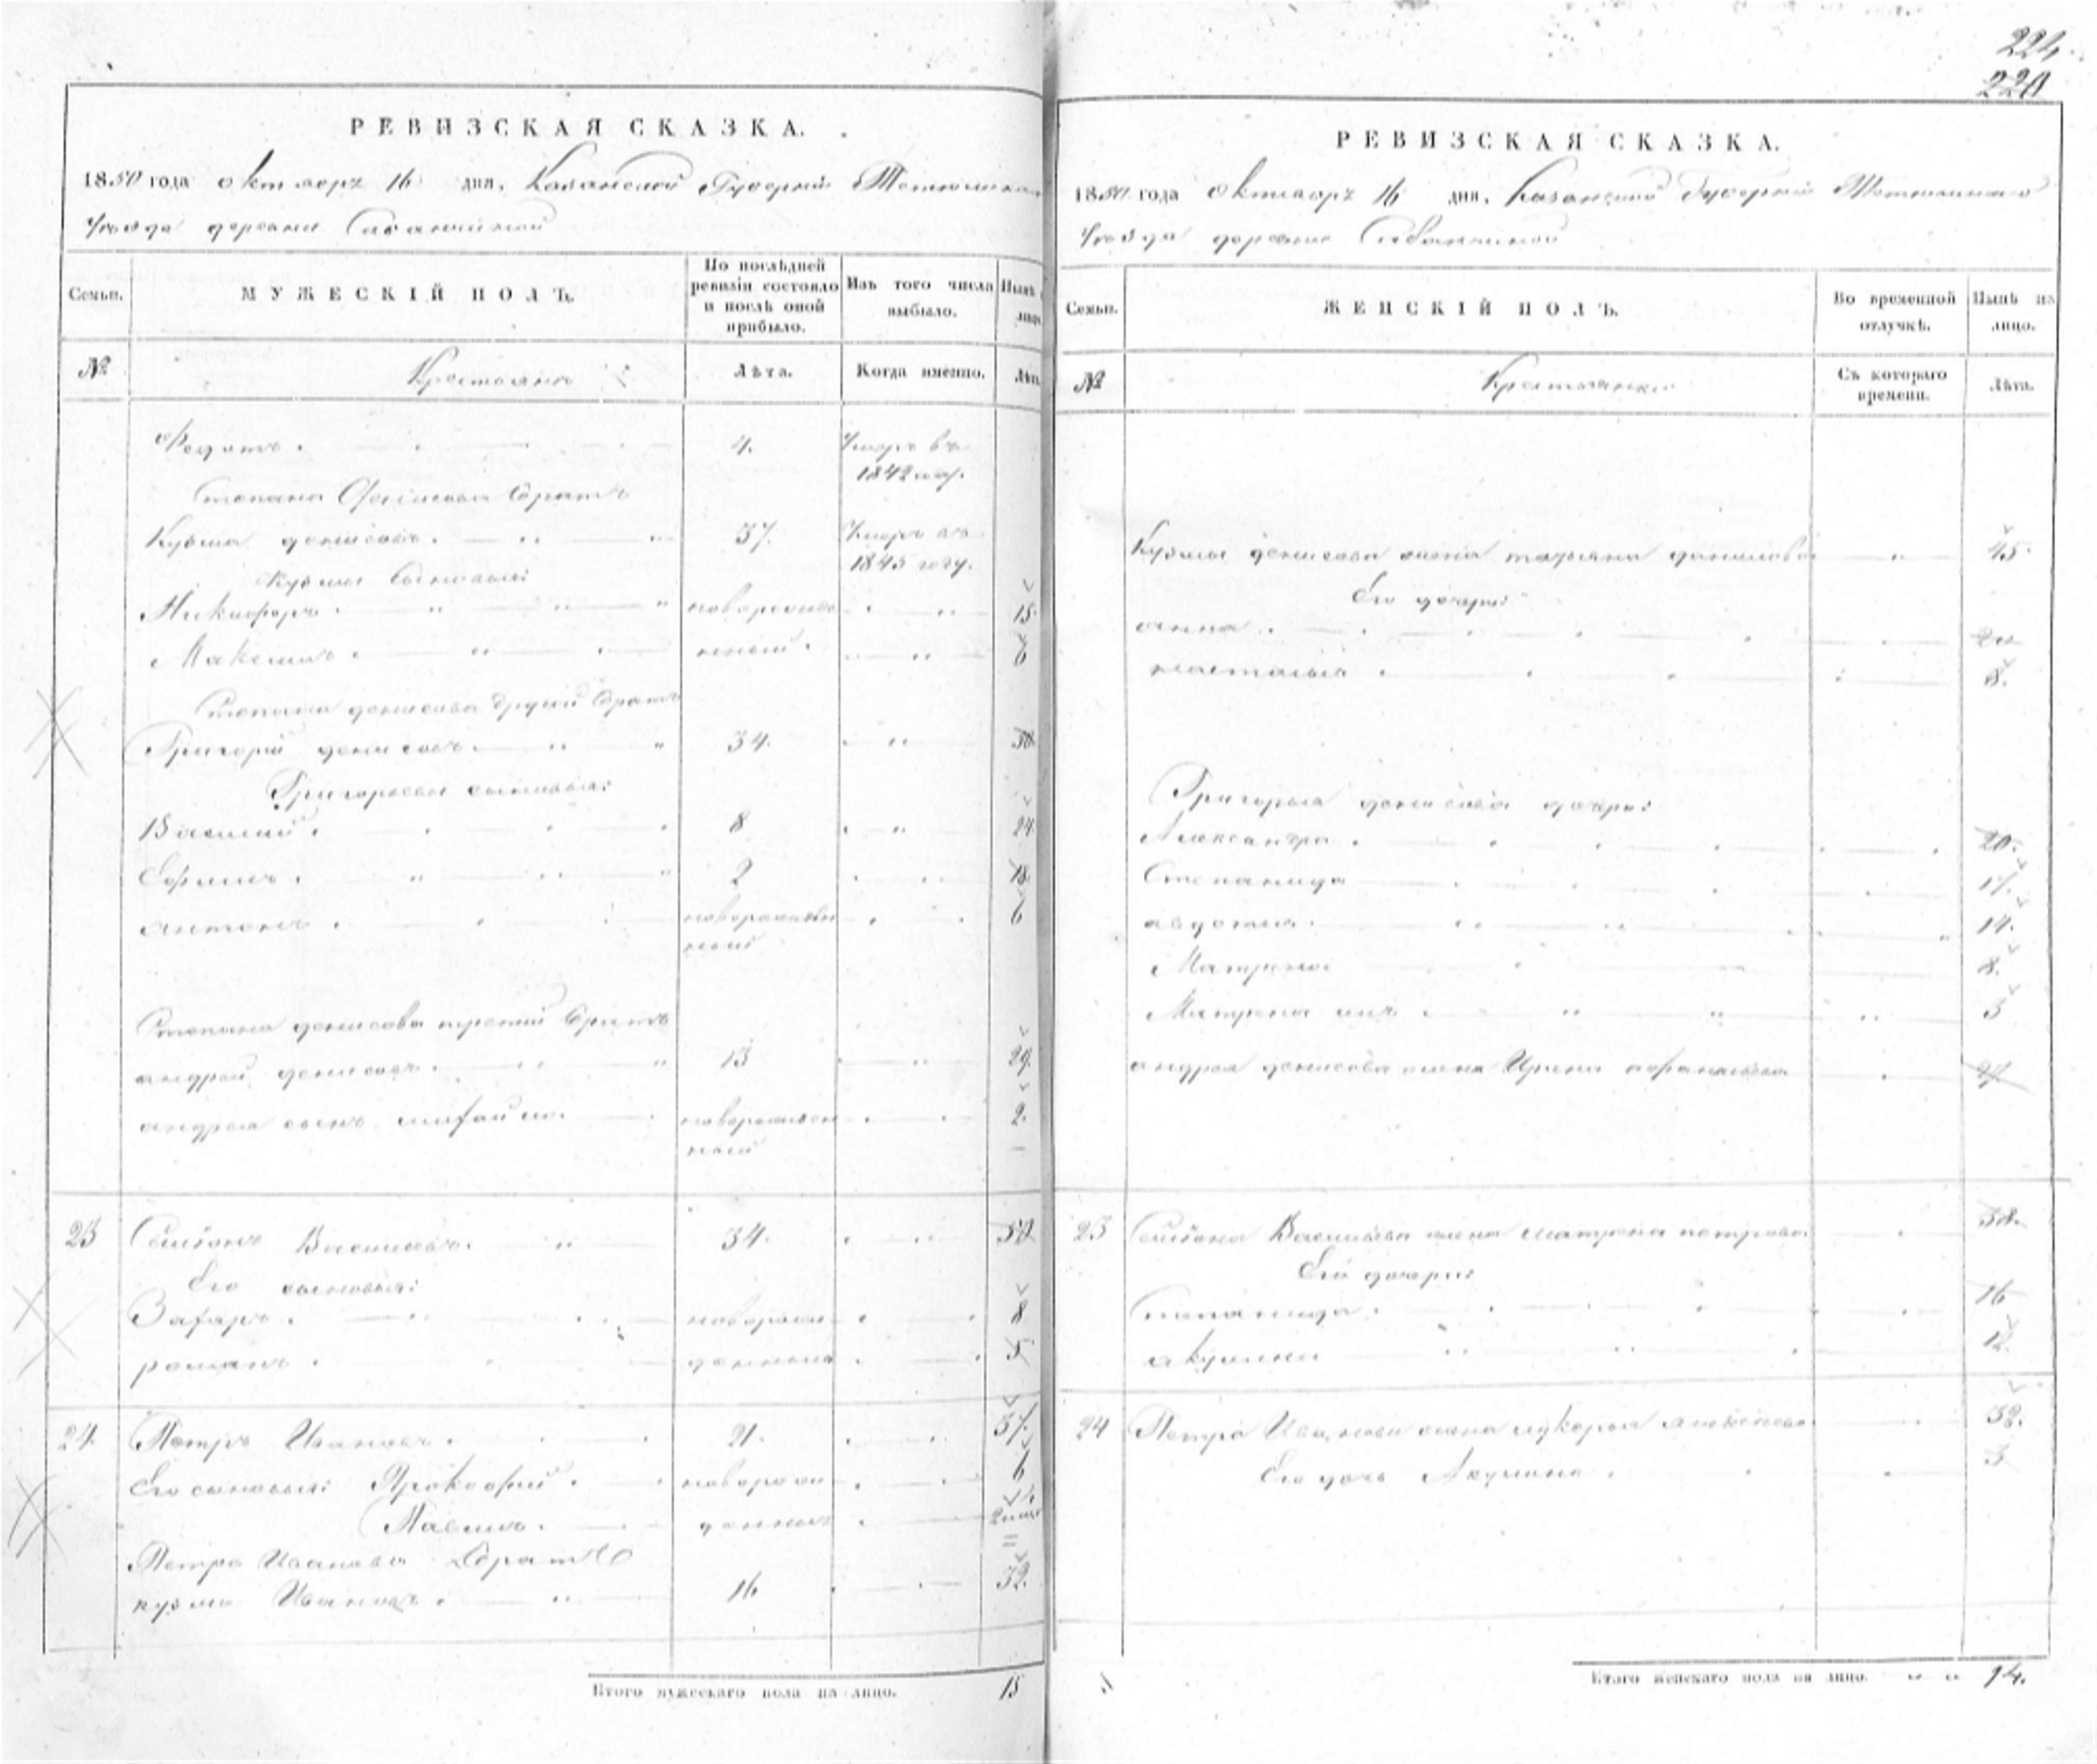 224
220
РЕВИЗСКАЯ СКАЗКА.
1850 года октября 16 дня, Казанской Губернии Тетюшска
уезда деревни
МУЖЕСКІЙ ПОЛЪ.
Семьи. По послѣдней ревизіи состояло и послѣ оной прибыло. Изъ того числа выбыло. Нынѣ
№ Крестьяне Лѣта. Когда именно. Лѣта
Федотъ 4. Умеръ въ
1842 году.
Степана Денисова братъ
Кузьма Денисовъ 37. Умеръ въ
1845 году.
Кузьмы сыновья:
Никифоръ новорожде 15
Максимъ нный 6
Степана Денисова другой братъ
Григорій Денисовъ 34. 50
Григорьевы сыновья:
Василий 8 24
Ефимъ 2 18
Антонъ новорожден 6
ный
Степана Денисова третий братъ
Андрей Денисовъ 13 29.
Андрея сынъ Михайло новорожден 2.
ный
23 Семёнъ Васильевъ 34. 50
Его сыновья:
Захаръ новорож 8
романъ денныя 5
24. Петръ Ивановъ 21. 37.
Его сыновья: Прокофий новорож 6
денныя
Петра Иванова братъ
кузма Ивановъ 16 32.
Итого мужескаго пола на лицо. 15
РЕВИЗСКАЯ СКАЗКА.
1850 года октября 16 дня, Казанской Губерніи
уезда деревни
Семьи. ЖЕНСКІЙ ПОЛЪ. Во временной отлучкѣ. Нынѣ на лицо.
№ Крестьянки Съ котораго времени. Лѣта.
Кузьмы Денисова жена татьяна данилова 45
Его дочери:
анна 20
настасья 8.
Григорья Денисова дочери:
Александра 20.
Степанида 17.
авдотья 14.
Матрена 8.
Матрена 3
андрея Денисова жена Ирина афанасьева 27
23 Семёна Васильева жена матрена петрова 58.
Его дочери:
степанида 16
акулина 12.
24 Петра Иванова жена лукерья алексеева 32.
Его дочь Акулина 3
Итого женскаго пола на лицо. 14.